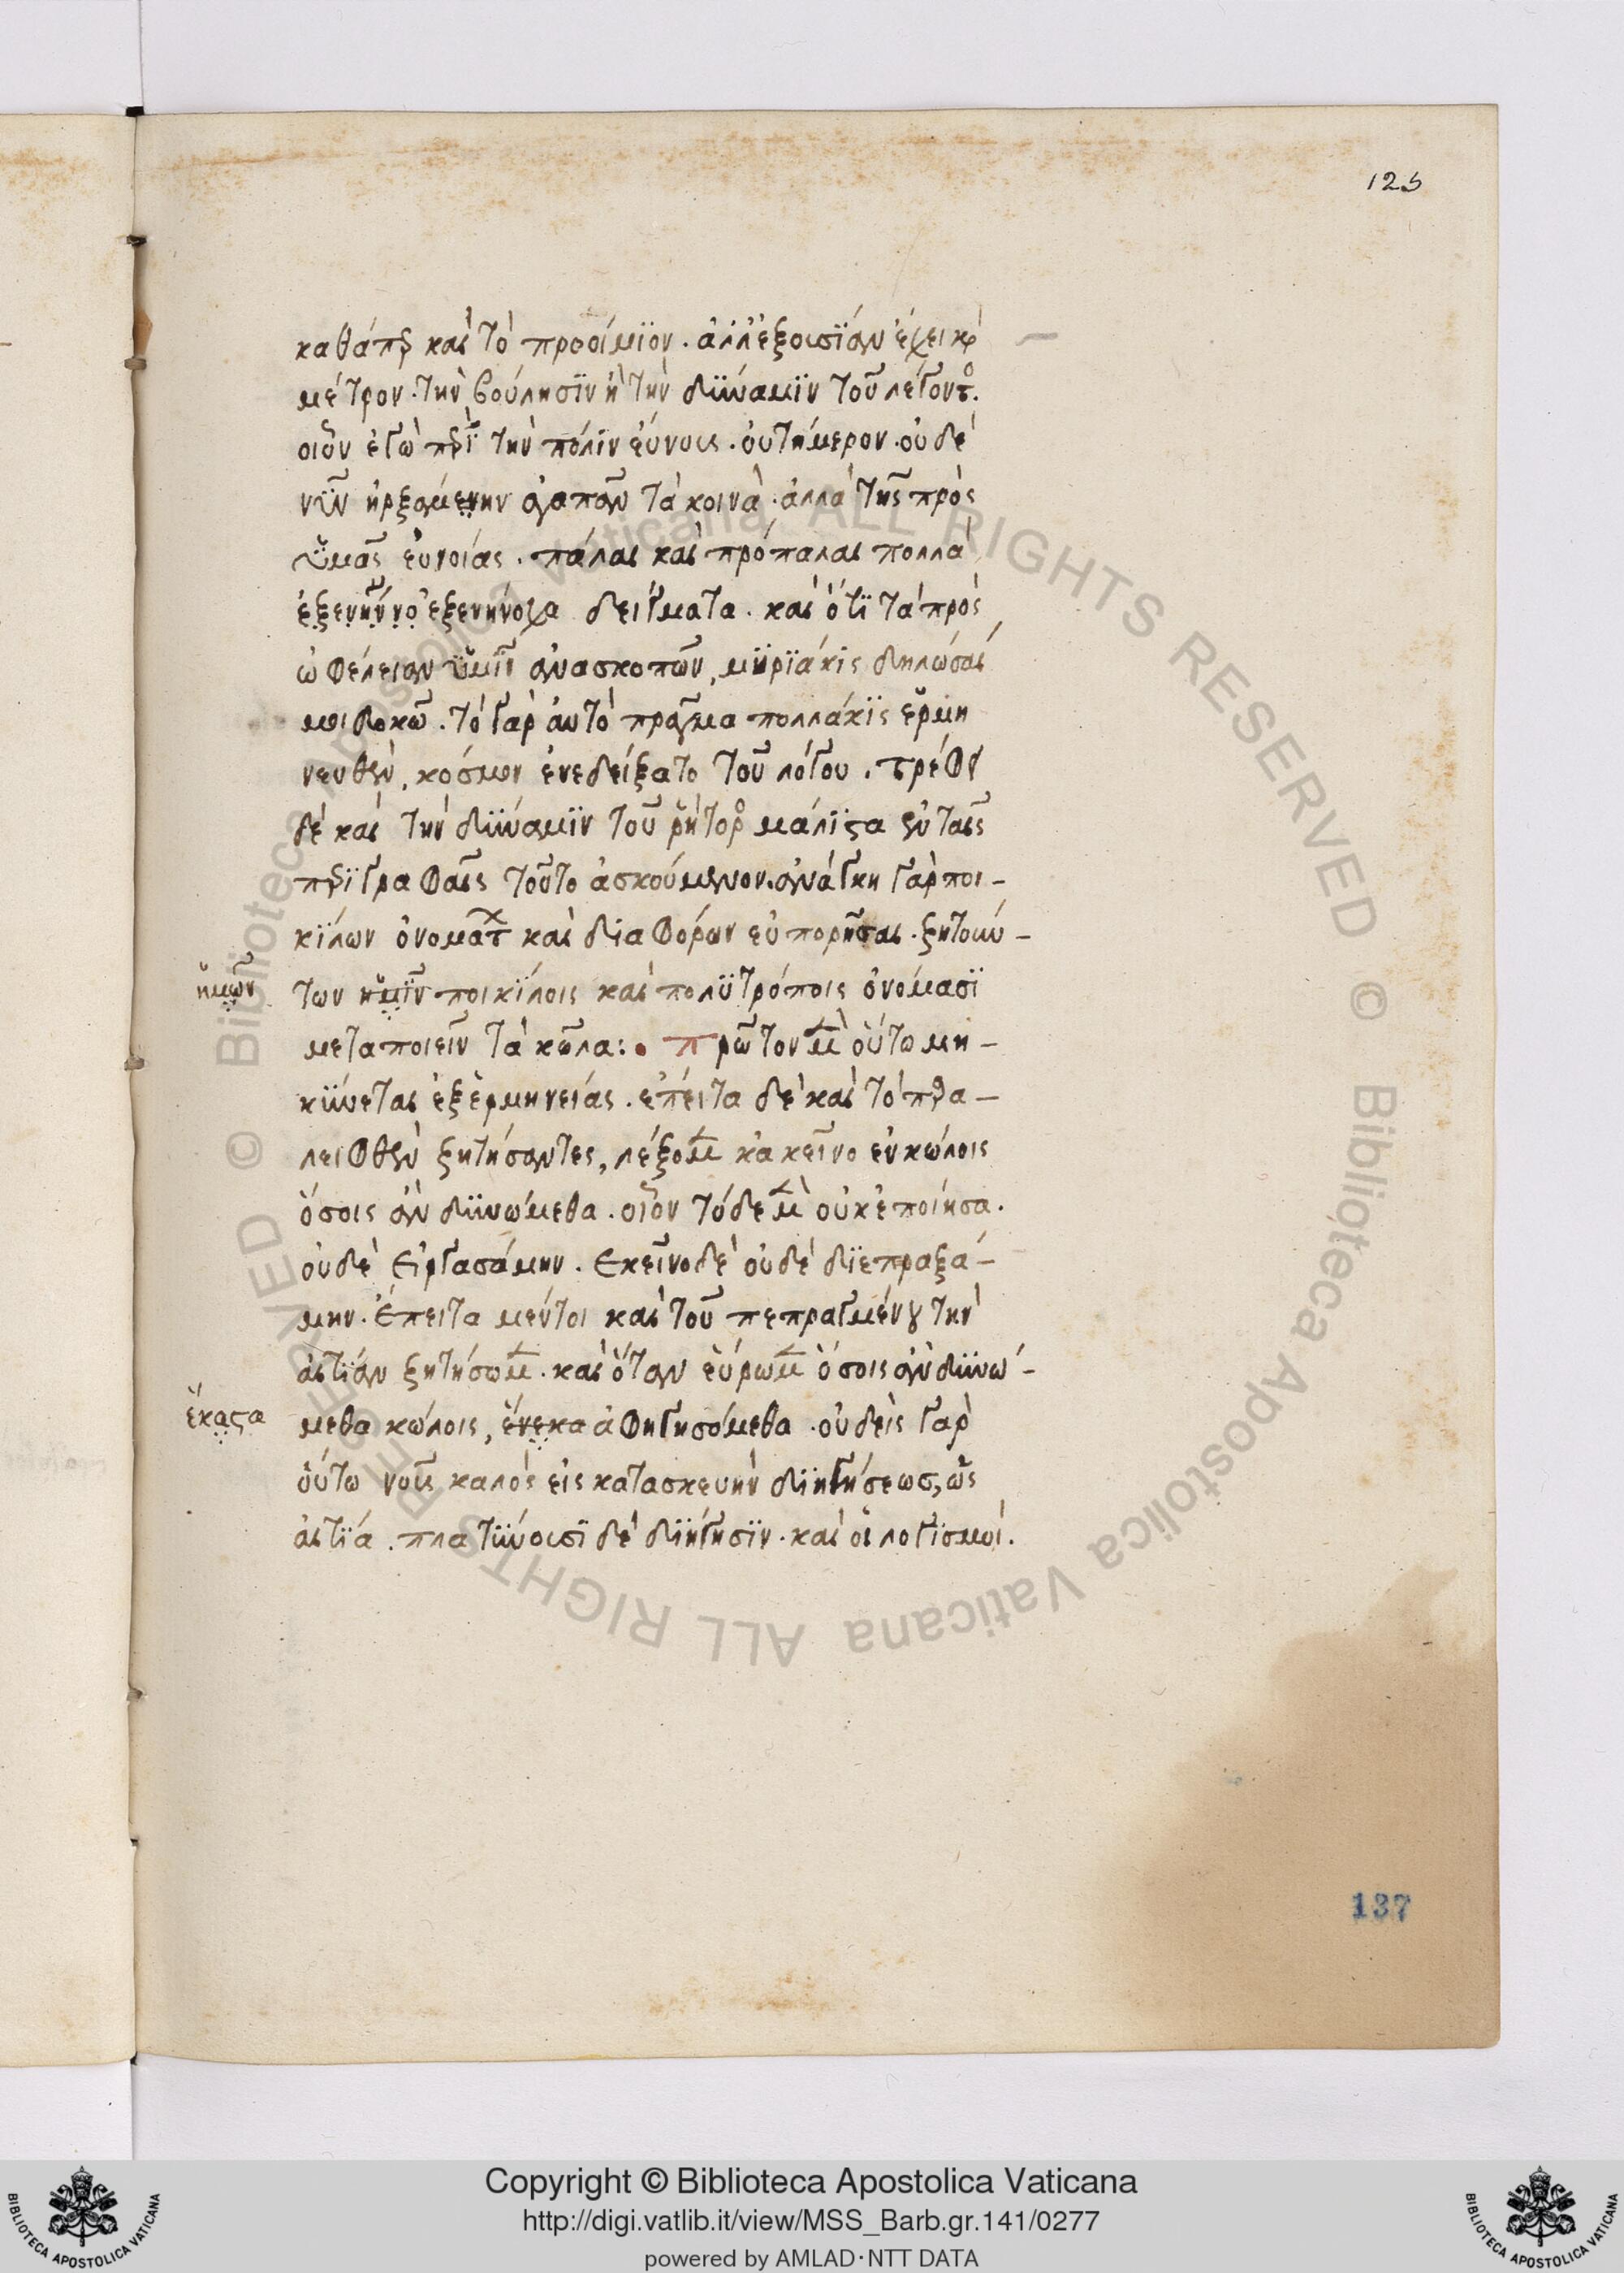 125
καθάπερ καὶ τὸ προοίμϊον . ἀλλ' ἐξουσϊάν ἔχει καὶ
μέτρον . τὴν βούλησϊν ἢ τὴν δϋναμϊν τοῦ λέγοντος.
οἷον ἐγὼ περῒ τὴν πόλϊν εὔνους . οὐ τήμερον . οὐδὲ
νῦν ἠρξάμενην ἀγαπᾶν τὰ κοινὰ . ἀλλὰ τῆς πρὸς
ὑμᾶς εὐνοίας . πάλαι καὶ πρόπαλαι πολλὰ
ἐξενήνο ἐξενήνοχα δείγματα . καὶ ὅτϊ τὰ πρὸς
ὠφέλειαν ὑμῖν ἀνασκοπῶν, μϋρϊάκϊς δηλῶσαί
μοι δοκῶ . τὸ γὰρ αὐτὸ πρᾶγμα πολλάκϊς ἑρμη
νευθὲν, κόσμον ἐνεδείξατο τοῦ λόγου . τρέφει
δὲ καὶ τὴν δϋναμϊν τοῦ ῥήτορος μάλϊστα ἐν ταῖς
περϊγραφαῖς τοῦτο ἀσκούμενον . ἀνάγκη γὰρ ποι-
κϊλων ὀνομάτων καὶ διαφόρων εὐπορῆσαι . ζητούν-
ἡμῶν
των ἡμῖν ποικϊλοις καὶ πολϋτρόποις ὀνόμασϊ
μεταποιεῖν τὰ κῶλα :. πρῶτον μὲν οὕτω μη-
κϋνεται ἐξ ἑρμηνείας . ἔπειτα δὲ καὶ τὸ παρα-
λειφθὲν ζητήσαντες, λέξομεν κἀκεῖνο ἐν κώλοις
ὅσοις ἂν δϋνώμεθα . οἷον τόδε μὲν οὐκ ἐποίησα .
οὐδὲ εἰργασάμην . ἐκεῖνο δὲ οὐδὲ δϊεπραξά-
μην . ἔπειτα μέντοι καὶ τοῦ πεπραγμένου τὴν
αἰτϊάν ζητήσωμεν . καὶ ὅταν εὕρωμεν ὅσοις ἂν δϋνώ-
ἕκαστα
μεθα κώλοις, ἕνεκα ἀφηγησόμεθα . οὐδεὶς γὰρ
οὕτω νοῦς καλὸς εἰς κατασκευὴν δϊηγήσεως, ὡς
αἰτϊά . πλατϋνουσϊ δὲ δϊήγησϊν . καὶ οἱ λογϊσμοί.
137
Copyright © Biblioteca Apostolica Vaticana
http://digi.vatlib.it/view/MSS_Barb.gr.141/0277
powered by AMLAD·NTT DATA
BIBLIOTECA APOSTOLICA VATICANA
BIBLIOTECA APOSTOLICA VATICANA
© Biblioteca Apostolica Vaticana ALL RIGHTS RESERVED © Biblioteca Apostolica Vaticana ALL RIGHTS RESERVED